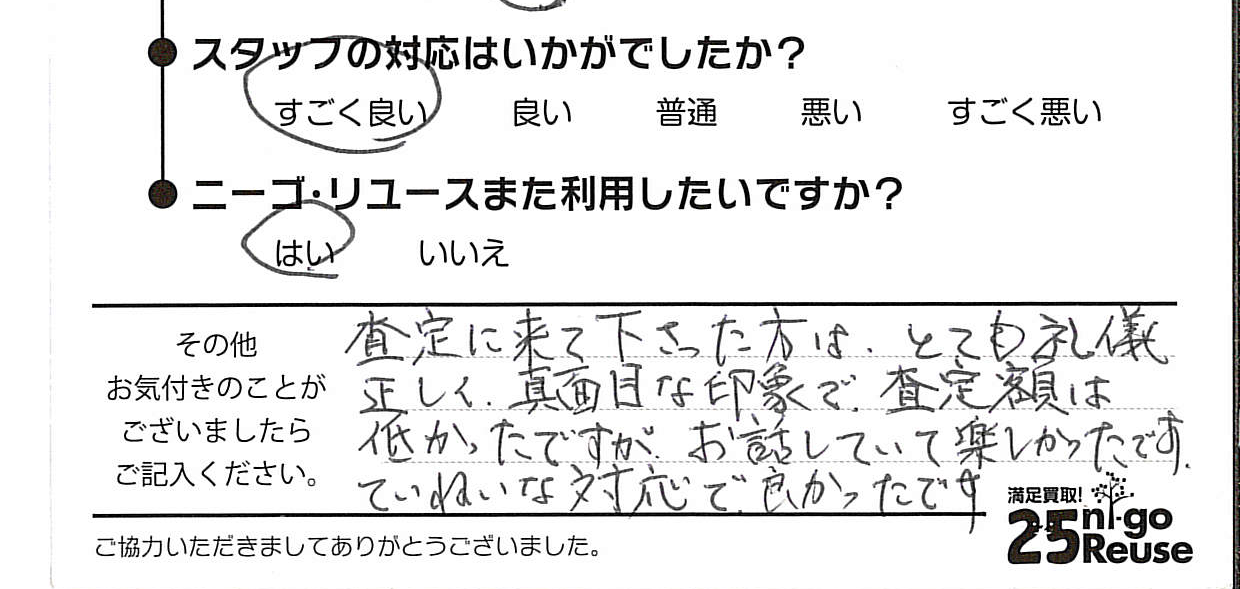 スタッフの対応はいかがでしたか？
すごく良い 良い 普通 悪い すごく悪い
ニーゴ・リユースまた利用したいですか？
はい いいえ
その他
お気付きのことが
ございましたら
ご記入ください。
査定に来て下さった方は、とても礼儀
正しく、真面目な印象で、査定額は
低かったですが、お話していて楽しかったです。
ていねいな対応で、良かったです
満足買取！
25 ni-go
Reuse
ご協力いただきましてありがとうございました。